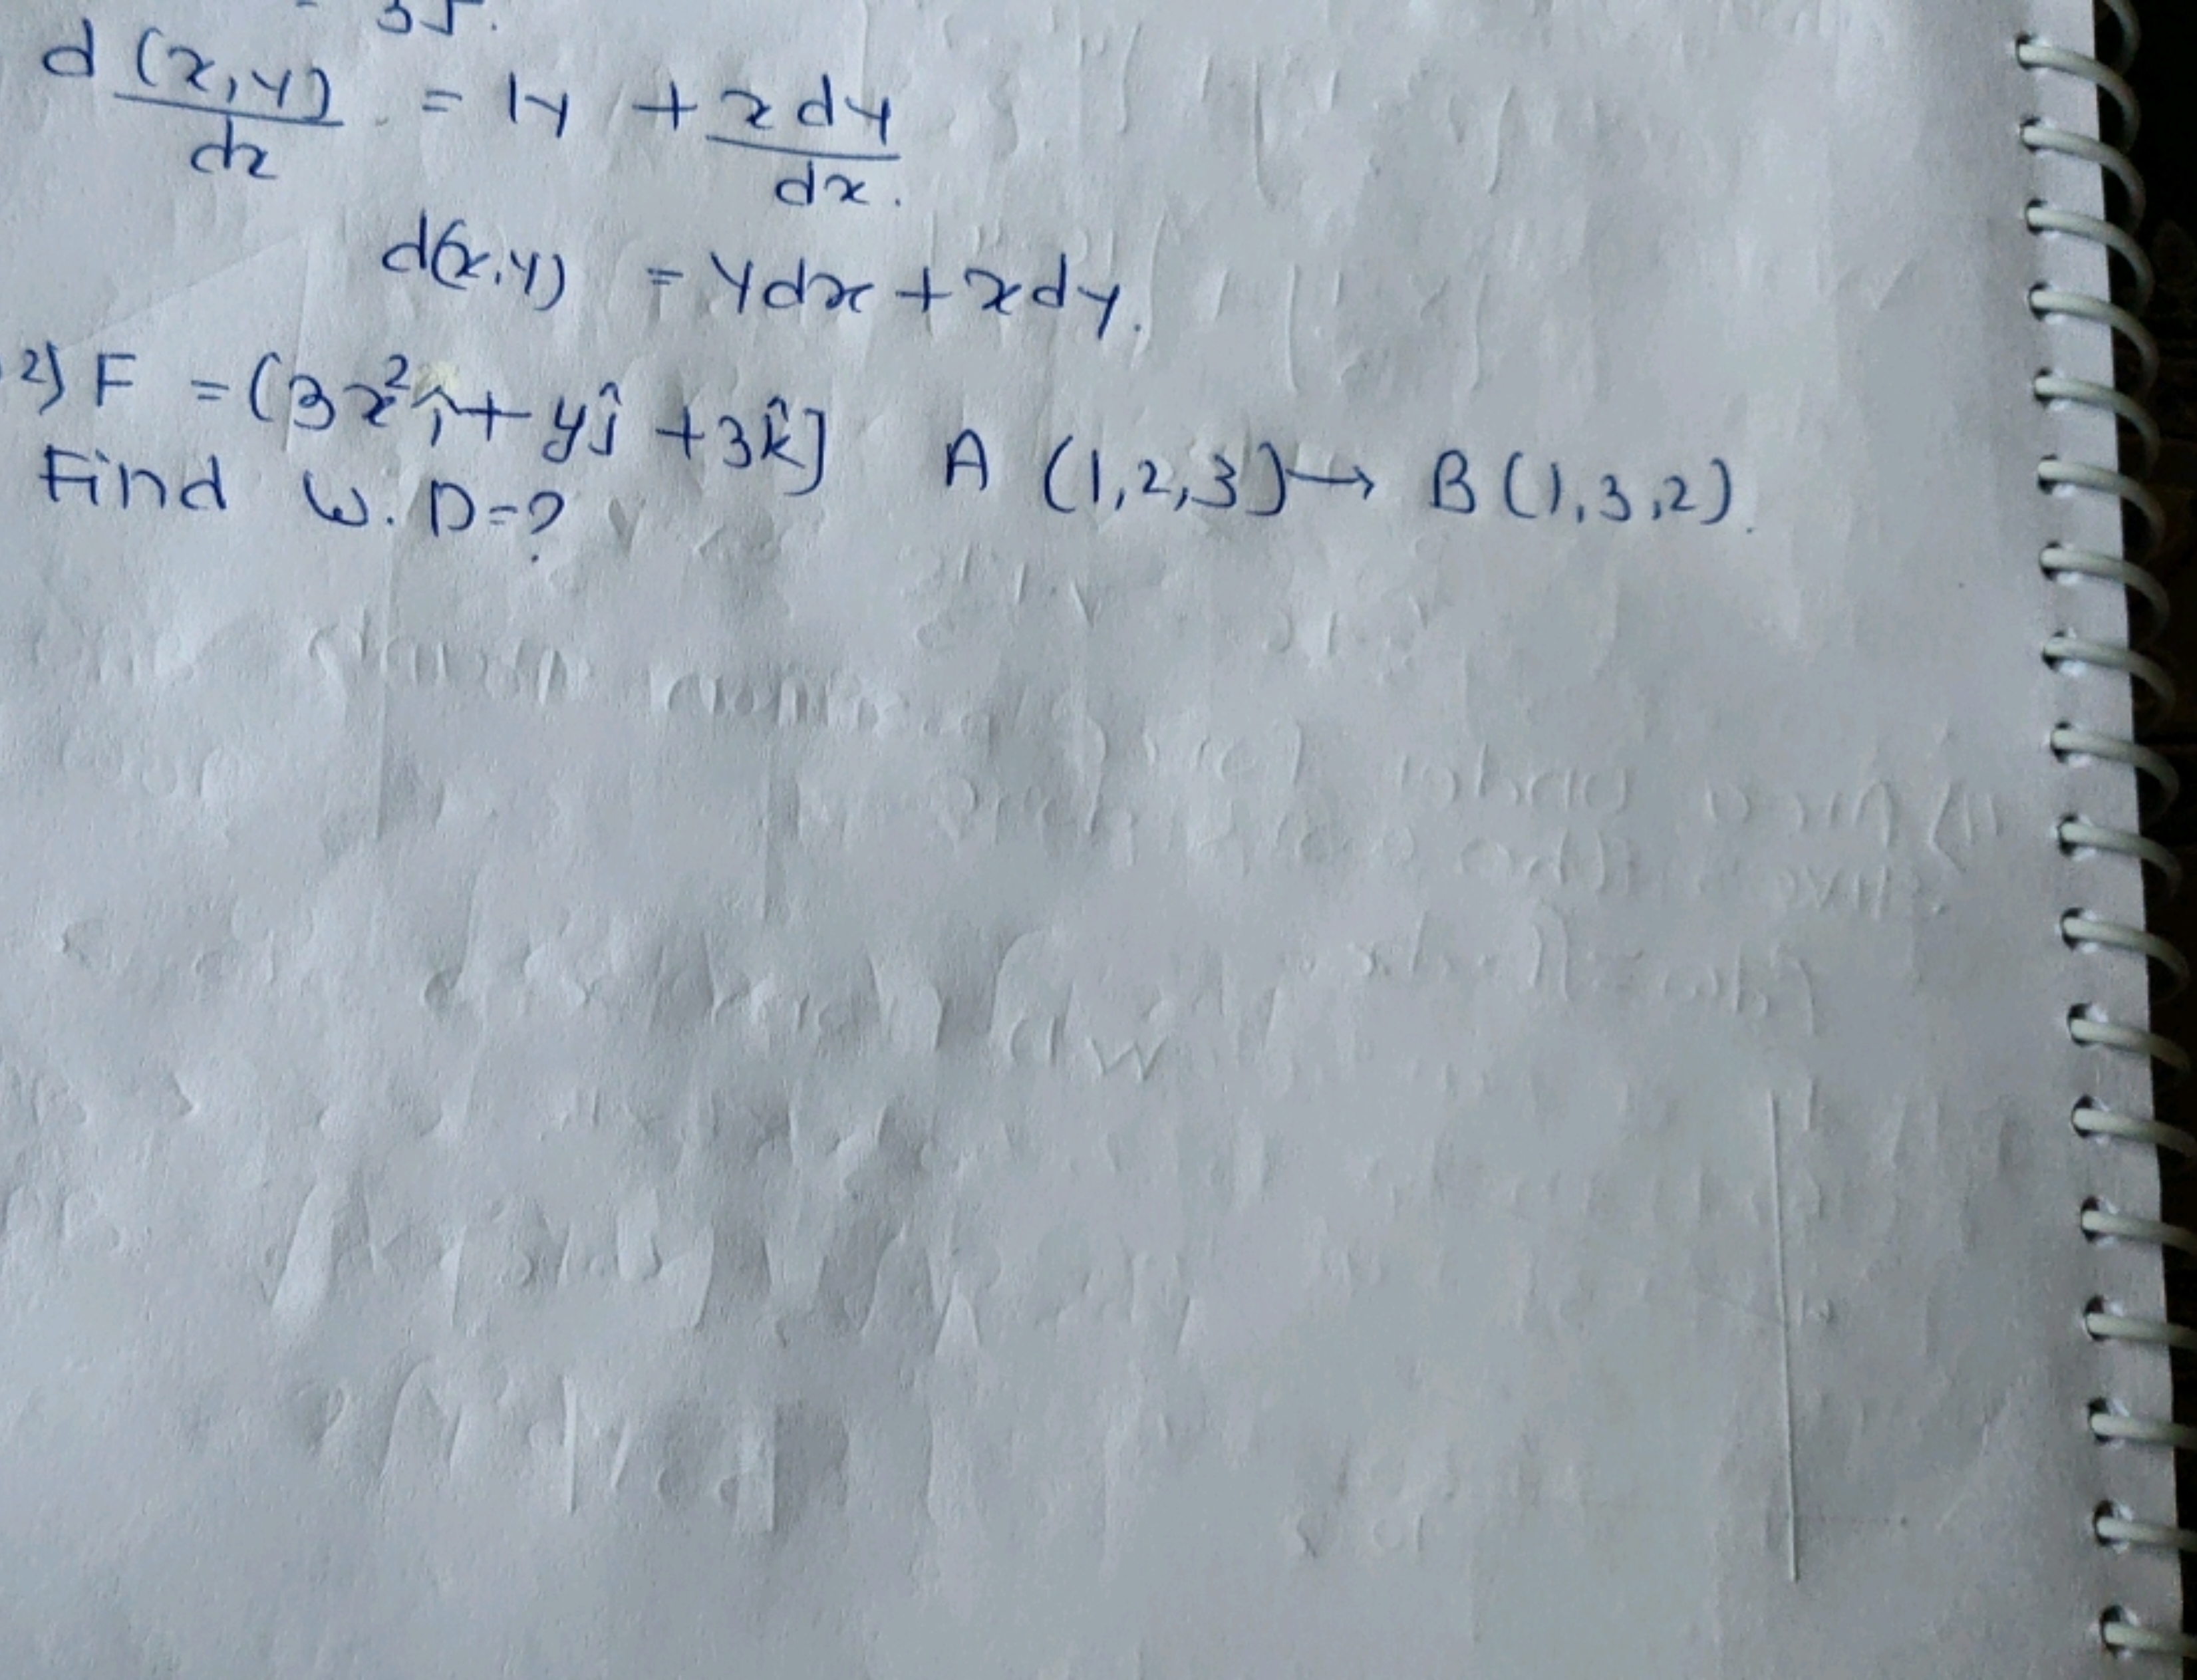 d(x,y)/dx = 1y + xdy/dx.
d(x,y) = ydx + xdy.
2) F = (3x²î + yĵ + 3k̂] A (1,2,3) → B (1,3,2).
Find W.D=?